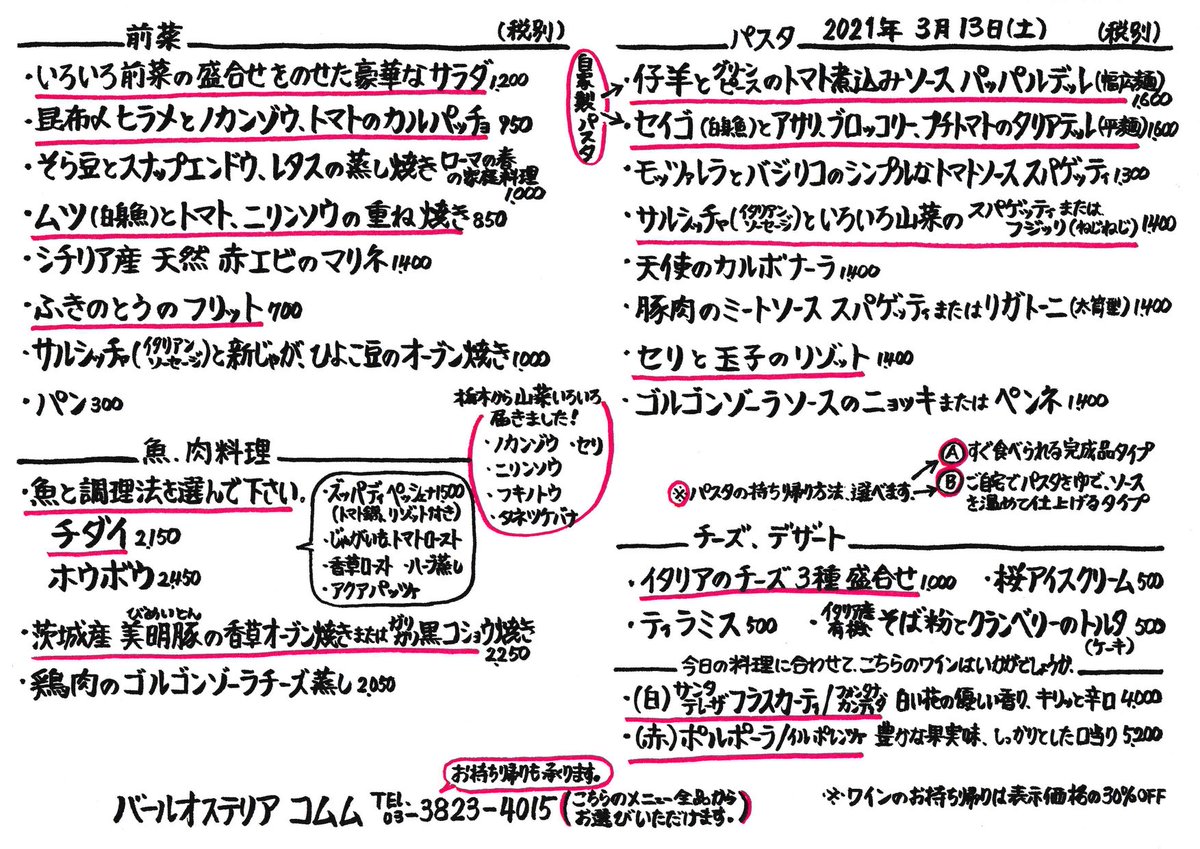 前菜 (税別)
・いろいろ前菜の盛合せをのせた豪華なサラダ 1,200
・昆布〆ヒラメとノカンゾウ、トマトのカルパッチョ 950
・そら豆とスナップエンドウ、レタスの蒸し焼き ローマの春の家庭料理 1,000
・ムツ(白身魚)とトマト、ニリンソウの重ね焼き 850
・シチリア産 天然 赤エビのマリネ 1,400
・ふきのとうのフリット 700
・サルシッチャ(イタリアンソーセージ)と新じゃが、ひよこ豆のオーブン焼き 1,000
・パン 300
栃木から山菜いろいろ
届きました!
・ノカンゾウ ・セリ
・ニリンソウ
・フキノトウ
・タネツケバナ
魚、肉料理
・魚と調理法を選んで下さい。
チダイ 2,150
ホウボウ 2,450
・ズッパディペッシェ(+1500
(トマト鍋、リゾット付き)
・じゃがいも、トマトロースト
・香草ロースト ・ハーブ蒸し
・アクアパッツァ
びめいとん
・茨城産 美明豚の香草オーブン焼きまたはガリガリ黒コショウ焼き
2,250
・鶏肉のゴルゴンゾーラチーズ蒸し 2,050
パスタ 2021年 3月13日(土) (税別)
自家製パスタ
・仔羊とグリンピースのトマト煮込みソース パッパルデッレ(幅広麺) 1,600
・セイゴ(白身魚)とアサリ、ブロッコリー、プチトマトのタリアテッレ(平麺) 1,600
・モッツァレラとバジリコのシンプルなトマトソース スパゲッティ 1,300
・サルシッチャ(イタリアンソーセージ)といろいろ山菜の スパゲッティまたはフジッリ(ねじねじ) 1,400
・天使のカルボナーラ 1,400
・豚肉のミートソース スパゲッティまたはリガトーニ(太筒型) 1,400
・セリと玉子のリゾット 1,400
・ゴルゴンゾーラソースのニョッキまたはペンネ 1,400
※パスタの持ち帰り方法、選べます。
Ⓐすぐ食べられる完成品タイプ
Ⓑご自宅でパスタをゆで、ソース
を温めて仕上げるタイプ
チーズ、デザート
・イタリアのチーズ3種盛合せ 1,000 ・桜アイスクリーム 500
・ティラミス 500 ・イタリア産有機そば粉とクランベリーのトルタ(ケーキ) 500
今日の料理に合わせて、こちらのワインはいかがでしょうか。
・(白)サンタテレーザフラスカーティ/フォンタナカンディダ 白い花の優しい香り、キリッと辛口 4,000
・(赤)ポルポーラ/イルポレンツァ 豊かな果実味、しっかりとした口当り 5,200
お持ち帰りも承ります。
バールオステリア コムム TEL.03-3823-4015(こちらのメニュー全品からお選びいただけます。)
※ワインのお持ち帰りは表示価格の30%OFF